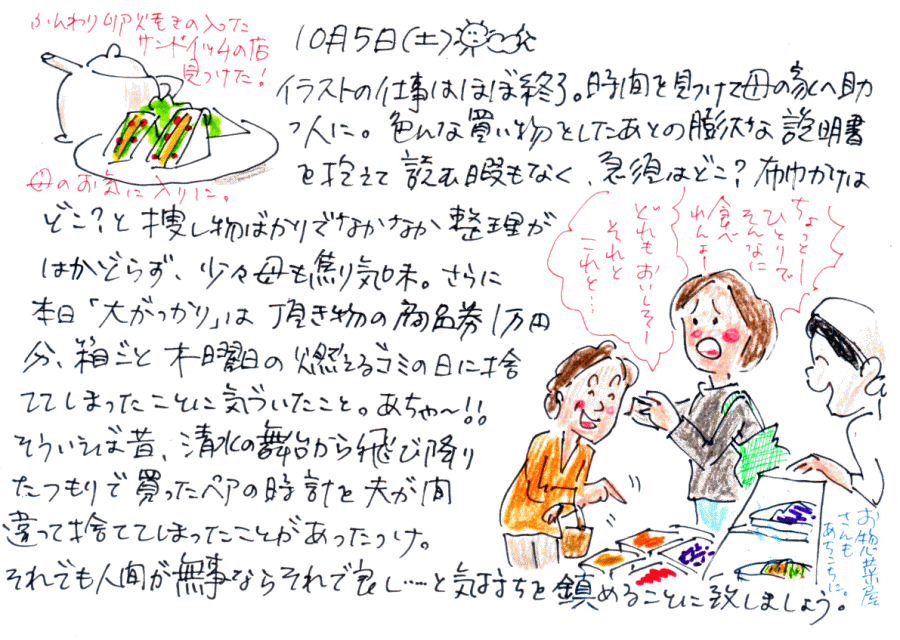 ふんわり卵焼きの入った
サンドイッチの店
見つけた!
母のお気に入りに。
10月5日(土)
イラストの仕事はほぼ終了。時間を見つけて母の家へ助
っ人に。色んな買い物をしたあとの膨大な説明書
を抱えて読む暇もなく、急須はどこ?布巾かけは
どこ?と捜し物ばかりでなかなか整理が
はかどらず、少々母も焦り気味。さらに
本日「大がっかり」は頂き物の商品券1万円
分、箱ごと木曜日の燃えるゴミの日に捨
ててしまったことに気づいたこと。あちゃ〜!!
そういえば昔、清水の舞台から飛び降り
たつもりで買ったペアの時計を夫が間
違って捨ててしまったことがあったっけ。
それでも人間が無事ならそれで良し……と気持ちを鎮めることに致しましょう。
ちょっとー
ひとりで
そんなに
食べ
れんよー
どれもおいしそー
それと
これと…
お惣菜屋
さんも
あちこちに。